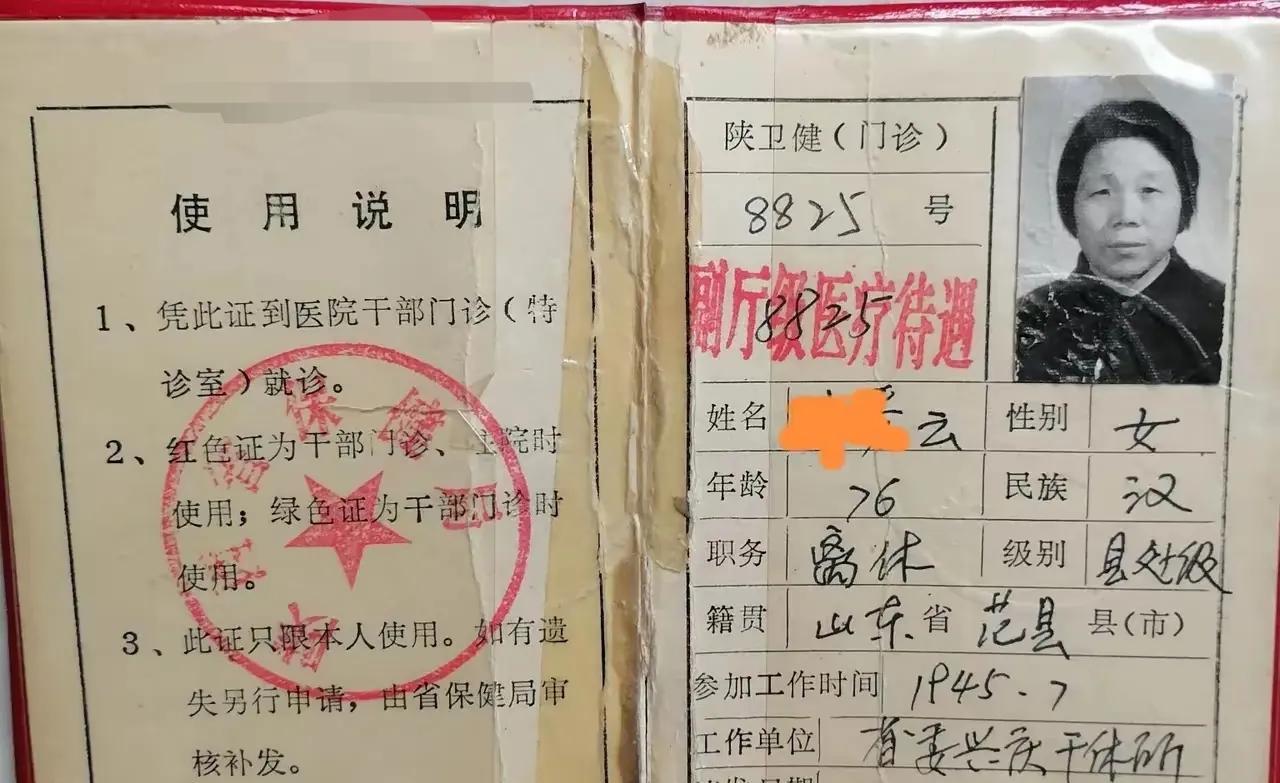 使用说明
1、凭此证到医院干部门诊(特
诊室)就诊。
2、红色证为干部门诊、住院时
使用;绿色证为干部门诊时
使用。
3、此证只限本人使用。如有遗
失另行申请,由省保健局审
核补发。
陕卫健(门诊)
8825 号
副厅级医疗待遇
8825
姓名 云 性别 女
年龄 76 民族 汉
职务 离休 级别 县处级
籍贯 山东省 范县 县(市)
参加工作时间 1945.7
工作单位 省委兴庆干休所